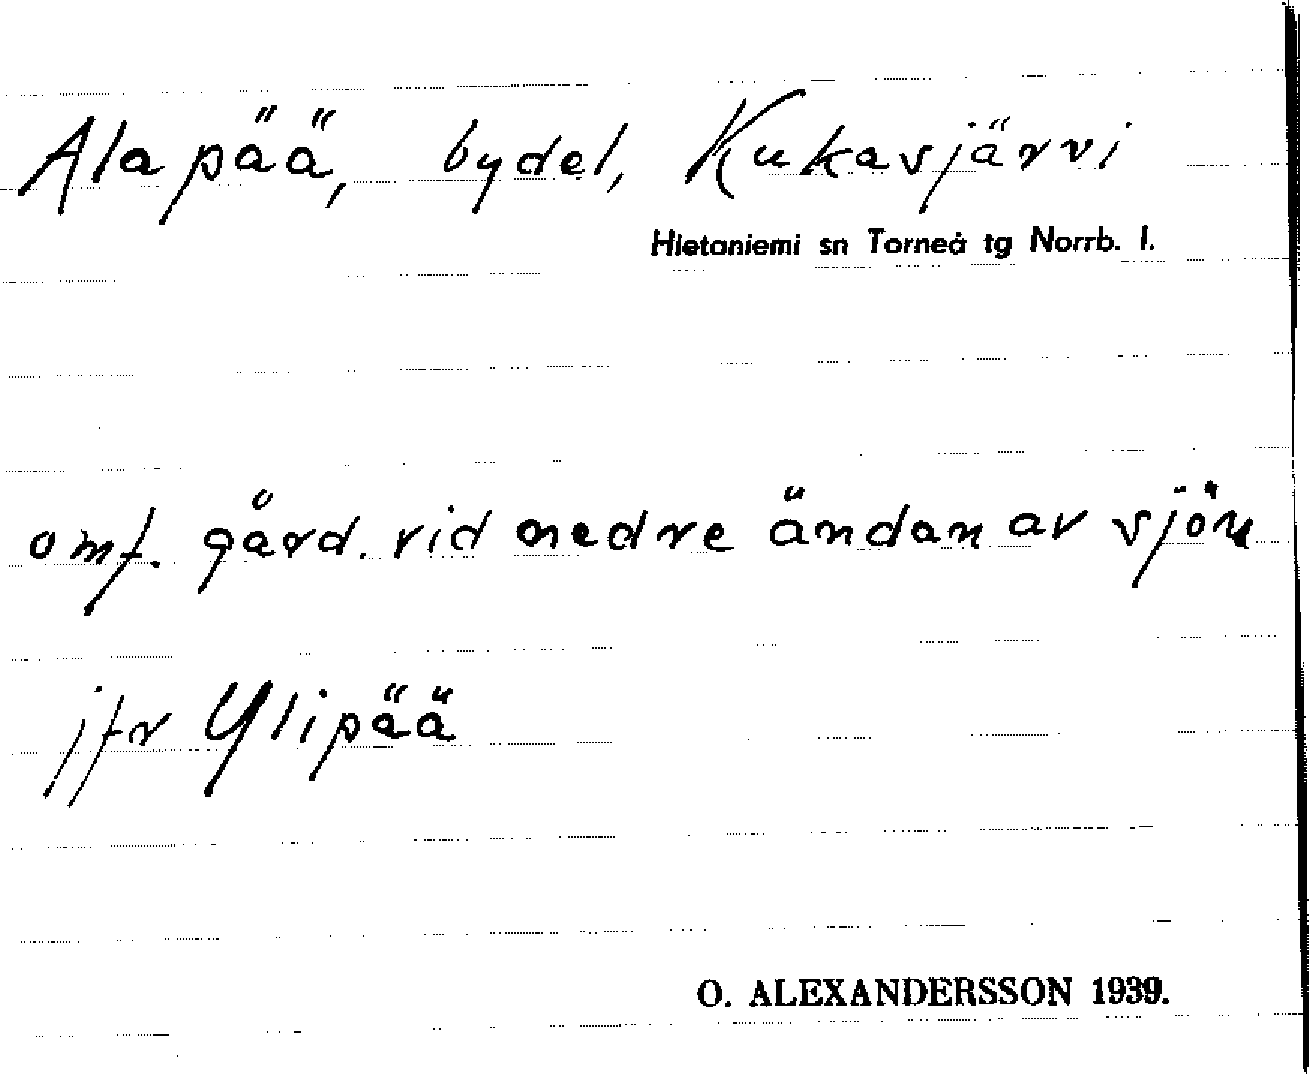 Alapää, bydel, Kukasjärvi
Hietaniemi sn Torneå tg Norrb. l.
omf. gård. vid nedre ändan av sjön
jfr Ylipää
O. ALEXANDERSSON 1939.